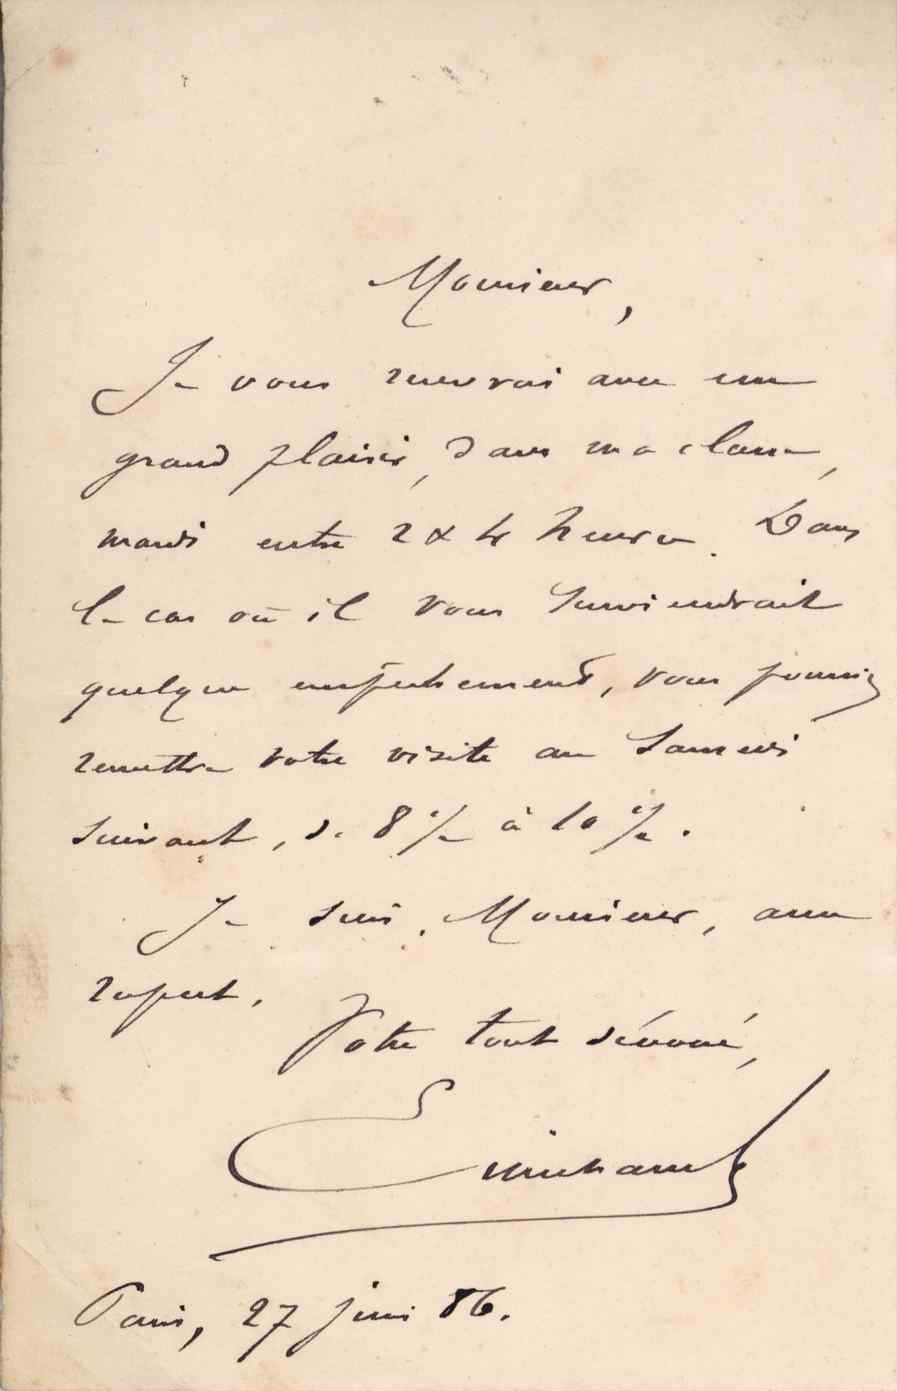 Monsieur,
Je vous recevrai avec un
grand plaisir, dans ma classe,
mardi entre 2 & 4 heures. Dans
le cas où il vous surviendrait
quelque empêchement, vous pourriez
remettre votre visite au samedi
suivant, de 8 h à 10 h.
Je suis, Monsieur, avec
respect,
Votre tout dévoué,
Paris, 27 juin 86.